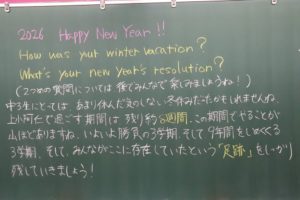 2026 Happy New Year!!
How was your winter vacation?
What's your new year's resolution?
(2つめの質問については後でみんなで楽しみましょうね!)
中3生にとっては、あまり休んだ気のしない冬休みだったかもしれませんね。
上小阿仁で過ごす期間は残り約8週間。この期間でやることが
山ほどありますね。いよいよ勝負の3学期。そして9年間をしめくくる
3学期。そして、みんながここに存在していたという「足跡」をしっかり
残していきましょう!